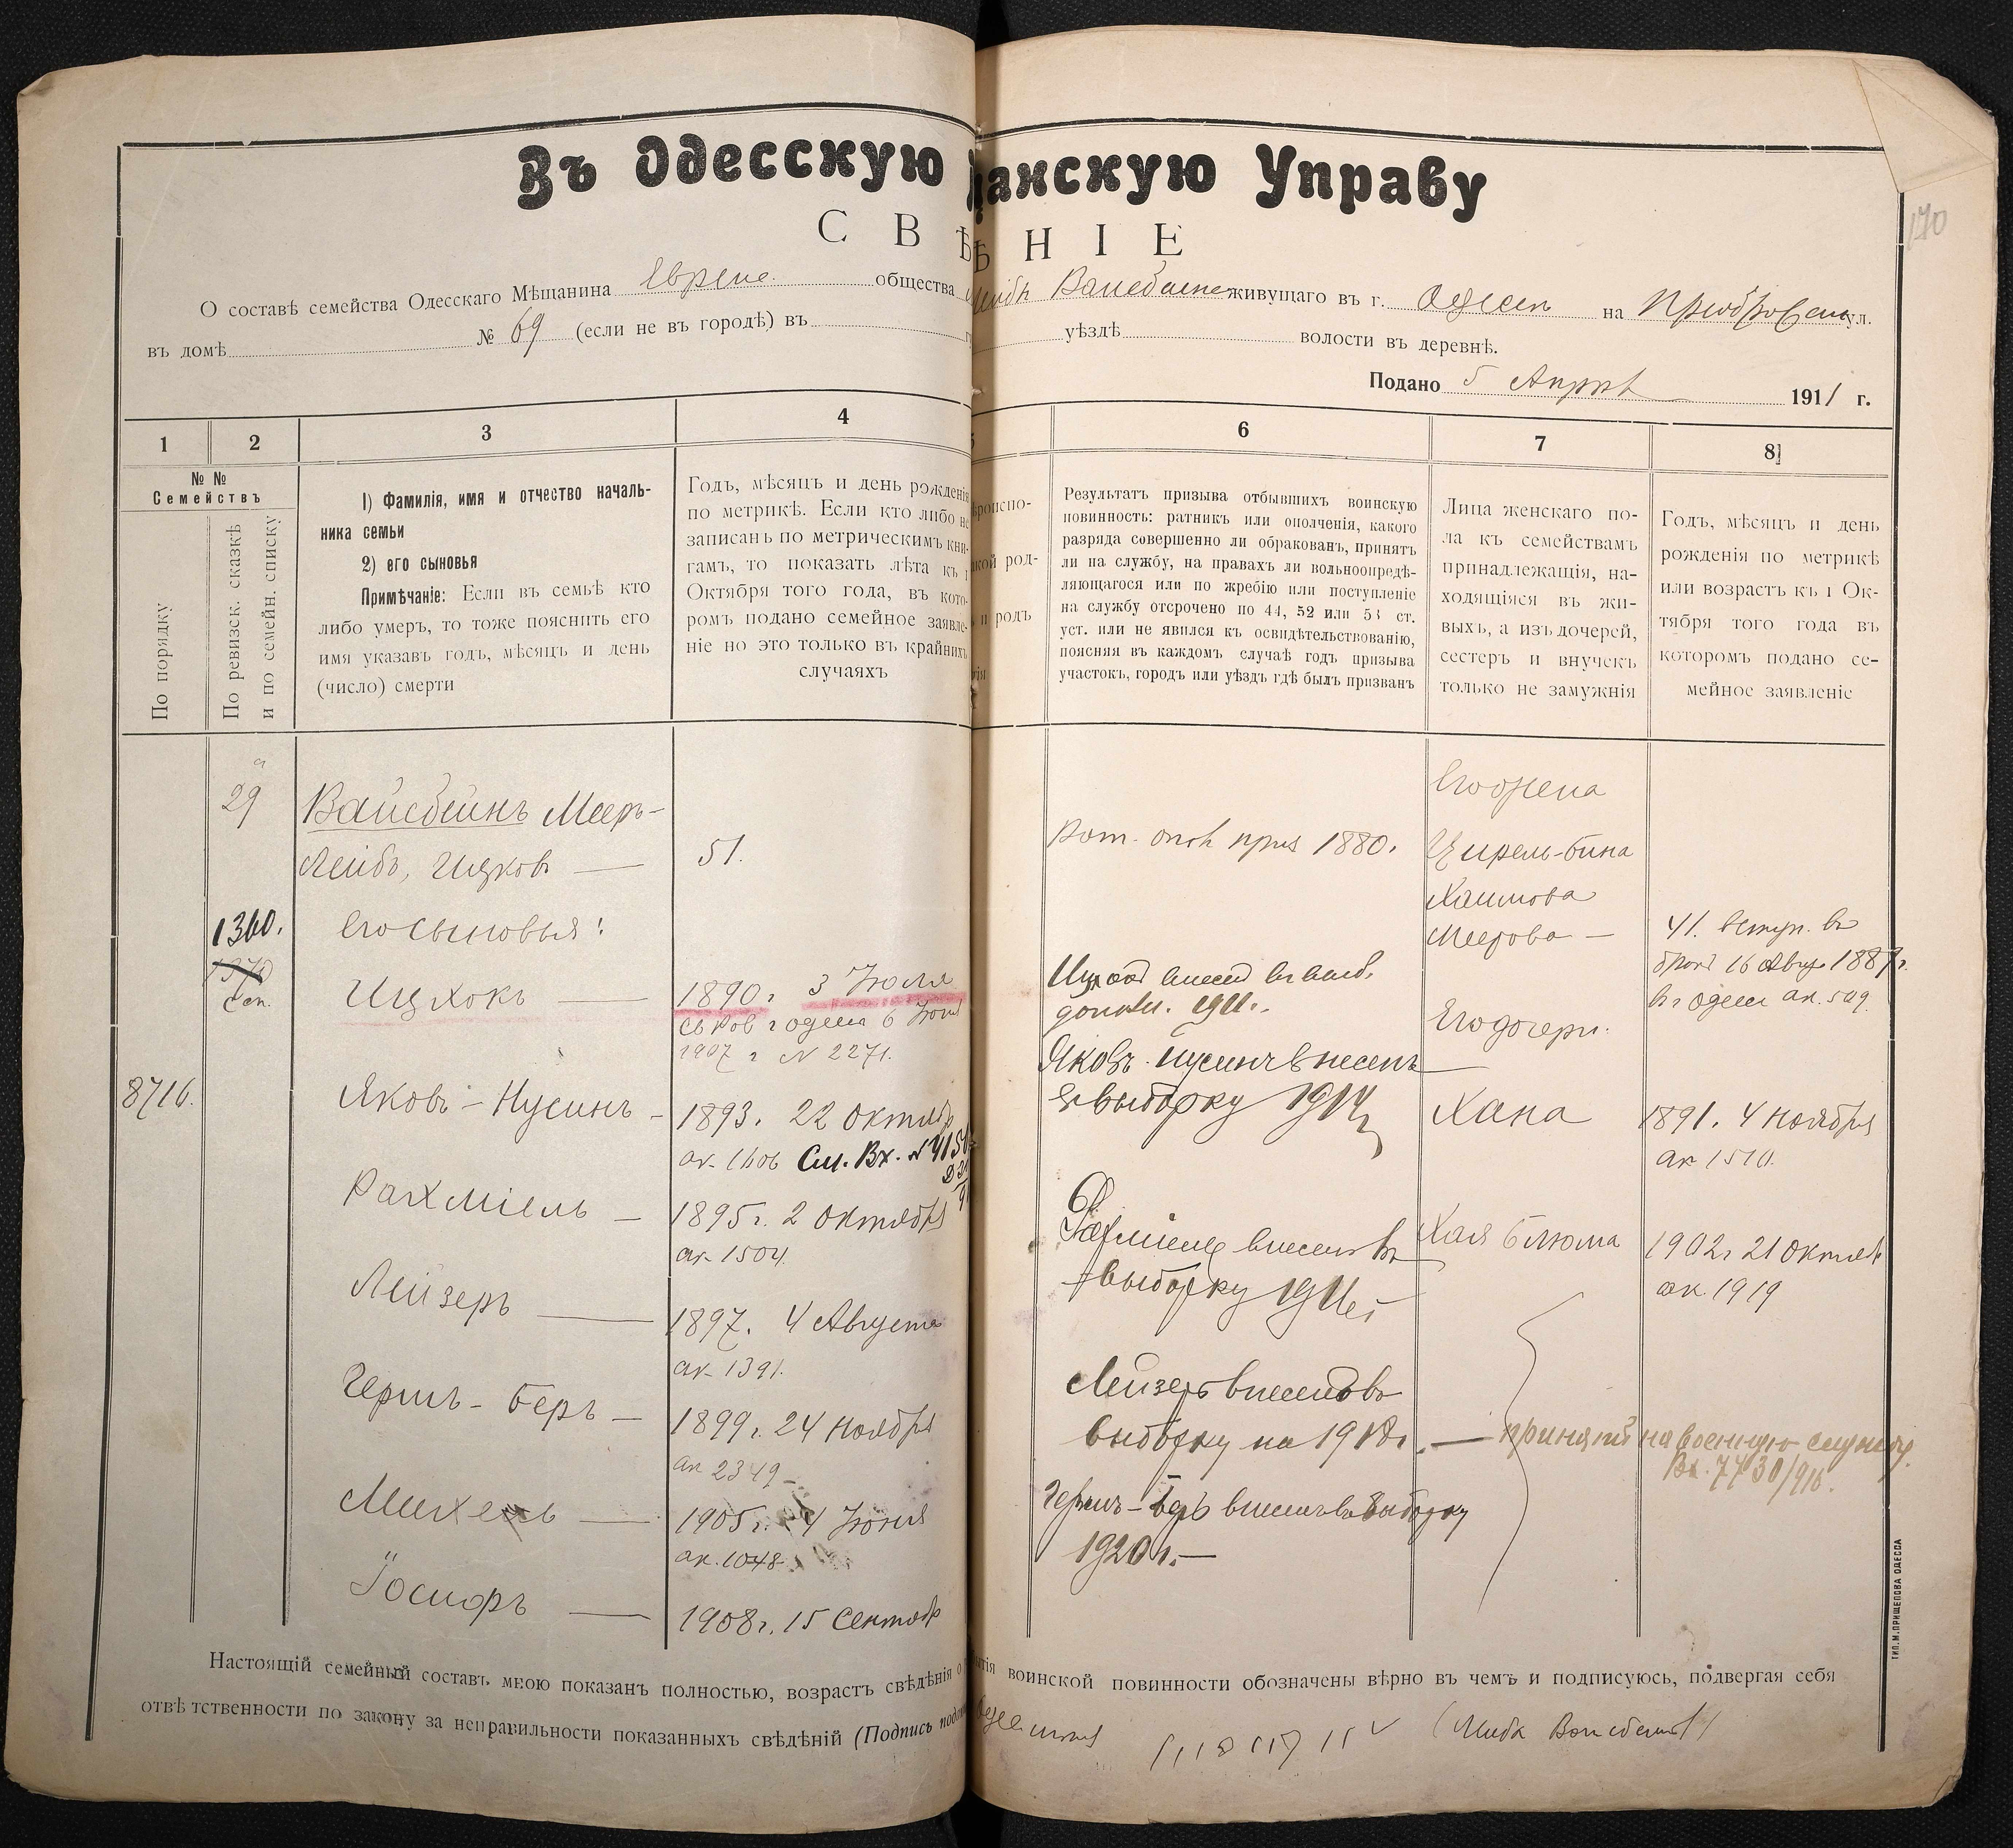 Въ Одесскую щанскую Управу
СВѢ ѢНІЕ
170
О составѣ семейства Одесскаго Мѣщанина Еврейс. общества Лейба Вайсбейнъ живущаго въ г. Одессѣ на ул.
въ домѣ № 69 (если не въ городѣ) въ уѣздѣ волости въ деревнѣ.
Подано 5 Апрѣ 1911 г.
1 2 3 4 6 7 8
№ №
Семействъ
По порядку
По ревизск. сказкѣ
и по семейн. списку
1) Фамилія, имя и отчество началь-
ника семьи
2) его сыновья
Примѣчаніе: Если въ семьѣ кто
либо умеръ, то тоже пояснить его
имя указавъ годъ, мѣсяцъ и день
(число) смерти
Годъ, мѣсяцъ и день рожденія
по метрикѣ. Если кто либо не
записанъ по метрическимъ кни-
гамъ, то показать лѣта къ 1
Октября того года, въ кото-
ромъ подано семейное заявле-
ніе но это только въ крайнихъ
случаяхъ
роиспо-
кой род-
и родъ
Результатъ призыва отбывшихъ воинскую
повинность: ратникъ или ополченія, какого
разряда совершенно ли обракованъ, принятъ
ли на службу, на правахъ ли вольноопредѣ-
ляющагося или по жребію или поступленіе
на службу отсрочено по 44, 52 или 53 ст.
уст. или не явился къ освидѣтельствованію,
поясняя въ каждомъ случаѣ годъ призыва
участокъ, городъ или уѣздъ гдѣ былъ призванъ
Лица женскаго по-
ла къ семействамъ
принадлежащія, на-
ходящіяся въ жи-
выхъ, а изъ дочерей,
сестеръ и внучекъ
только не замужнія
Годъ, мѣсяцъ и день
рожденія по метрикѣ
или возрастъ къ 1 Ок-
тября того года въ
которомъ подано се-
мейное заявленіе
29
Вайсбейнъ Мееръ-
Лейбъ, Ицковъ — 51.
1360.
Его сыновья:
Ицхокъ — 1890 г. 3 Юля
1907 г № 2271.
8716.
Яковъ-Нусинъ - 1893. 22 Октяб
ак. 1606 См. Вх. №
Рахміель — 1895 г. 2 Октября
ак 1504.
Лейзеръ — 1897. 4 Августа
ак. 1391.
Гершъ-Беръ — 1899 г. 24 Ноября
ак 2349-
Михель — 1905 г. 4 Юня
ак. 1048
Іосифъ — 1908 г. 15 Сентябр
Рат. опол приз 1880.
Ицхокъ внесенъ
1911.
Яковъ Нусинъ внесенъ
въ выборку 1914
Рахміель внесенъ въ
выборку
Лейзеръ внесенъ въ
выборку на 1918 г. —
Гершъ-Беръ внесенъ въ выборку
1920 г. —
Его жена
Цирель-Бина
Хаимова
Меерова —
Его дочери.
Хана
Хая Блюма
41. вступ. въ
бракъ 16 Авгу 1887 г.
въ г Одесс ак. 509
1891. 4 Ноября
ак 1510.
1902 г 21 Октяб
ак. 1919
принятъ на военную службу.
Вх. 7730/916.
Настоящій семейный составъ мною показанъ полностью, возрастъ свѣдѣнія о тія воинской повинности обозначены вѣрно въ чемъ и подписуюсь, подвергая себя
отвѣтственности по закону за неправильности показанныхъ свѣдѣній (Подпись (Лейба Вайсбейнъ)
ТИП. М. ПРИЩЕПОВА ОДЕССА